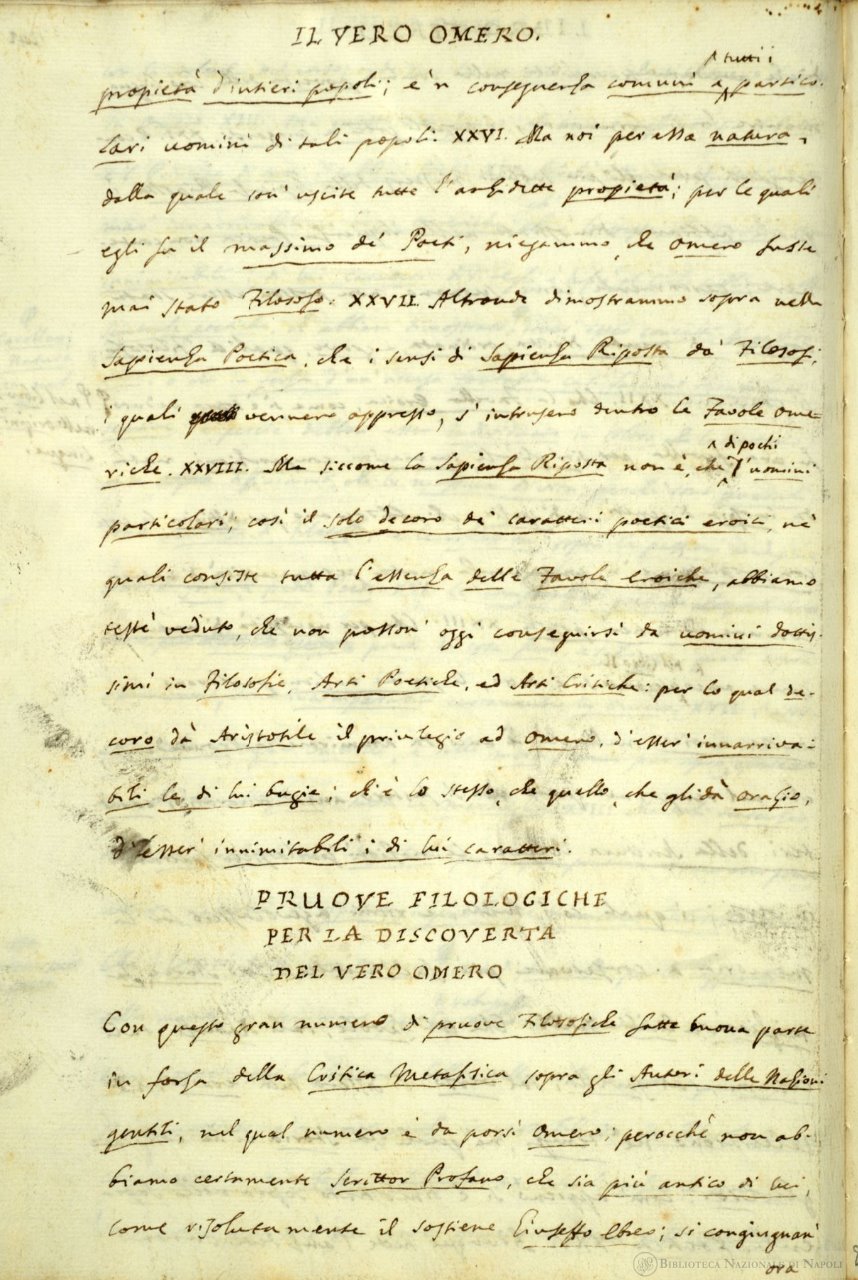 IL VERO OMERO.
tutti i
propietà d'intieri popoli; e 'n conseguenza comuni a partico-
lari uomini di tali popoli. XXVI. Ma noi per essa natura,
dalla quale son' uscite tutte l'anzidette propietà; per le quali
egli fu il massimo de' Poeti, niegammo, che Omero fusse
mai stato Filosofo. XXVII. Altronde dimostrammo sopra nella
Sapienza Poetica, che i sensi di Sapienza Riposta da' Filosofi,
i quali vennero appresso, s'intrusero dentro le Favole Ome-
di pochi
riche. XXVIII. Ma siccome la Sapienza Riposta non è, che uomini
particolari; così il solo decoro de' caratteri poetici eroici, ne'
quali consiste tutta l'essenza delle Favole Eroiche, abbiamo
testè veduto, che non posson' oggi conseguirsi da uomini dottis-
simi in Filosofie, Arti Poetiche, ed Arti Critiche: per lo qual de-
coro dà Aristotile il privilegio ad Omero, d'esser' innarriva-
bili le di lui bugie; ch'è lo stesso, che quello, che gli dà Orazio,
d'esser' innimitabili i di lui caratteri.
PRUOVE FILOLOGICHE
PER LA DISCOVERTA
DEL VERO OMERO
Con questo gran numero di pruove Filosofiche fatte buona parte
in forza della Critica Metafisica sopra gli Autori delle Nazioni
gentili, nel qual numero è da porsi Omero; perocchè non ab-
biamo certamente Scrittor Profano, che sia più antico di lui,
come risolutamente il sostiene Giuseffo Ebreo; si congiugnan'
ora
BIBLIOTECA NAZIONALE DI NAPOLI